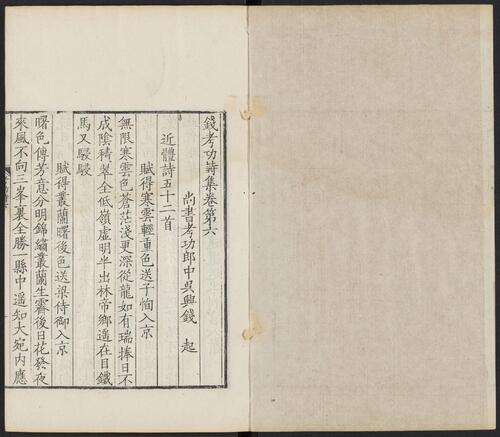 錢考功詩集卷第六
尚書考功郎中吳興錢 起
近體詩五十二首
賦得寒雲輕重色送子恂入京
無限寒雲色蒼茫淺更深從龍如有瑞捧日不
成陰積翠全低嶺虛明半出林帝鄉遥在目鐵
馬又駸駸
賦得叢蘭曙後色送梁侍御入京
曙色傳芳意分明錦繡叢蘭生霽後日花發夜
來風不向三峯裏全勝一縣中遥知大宛內應